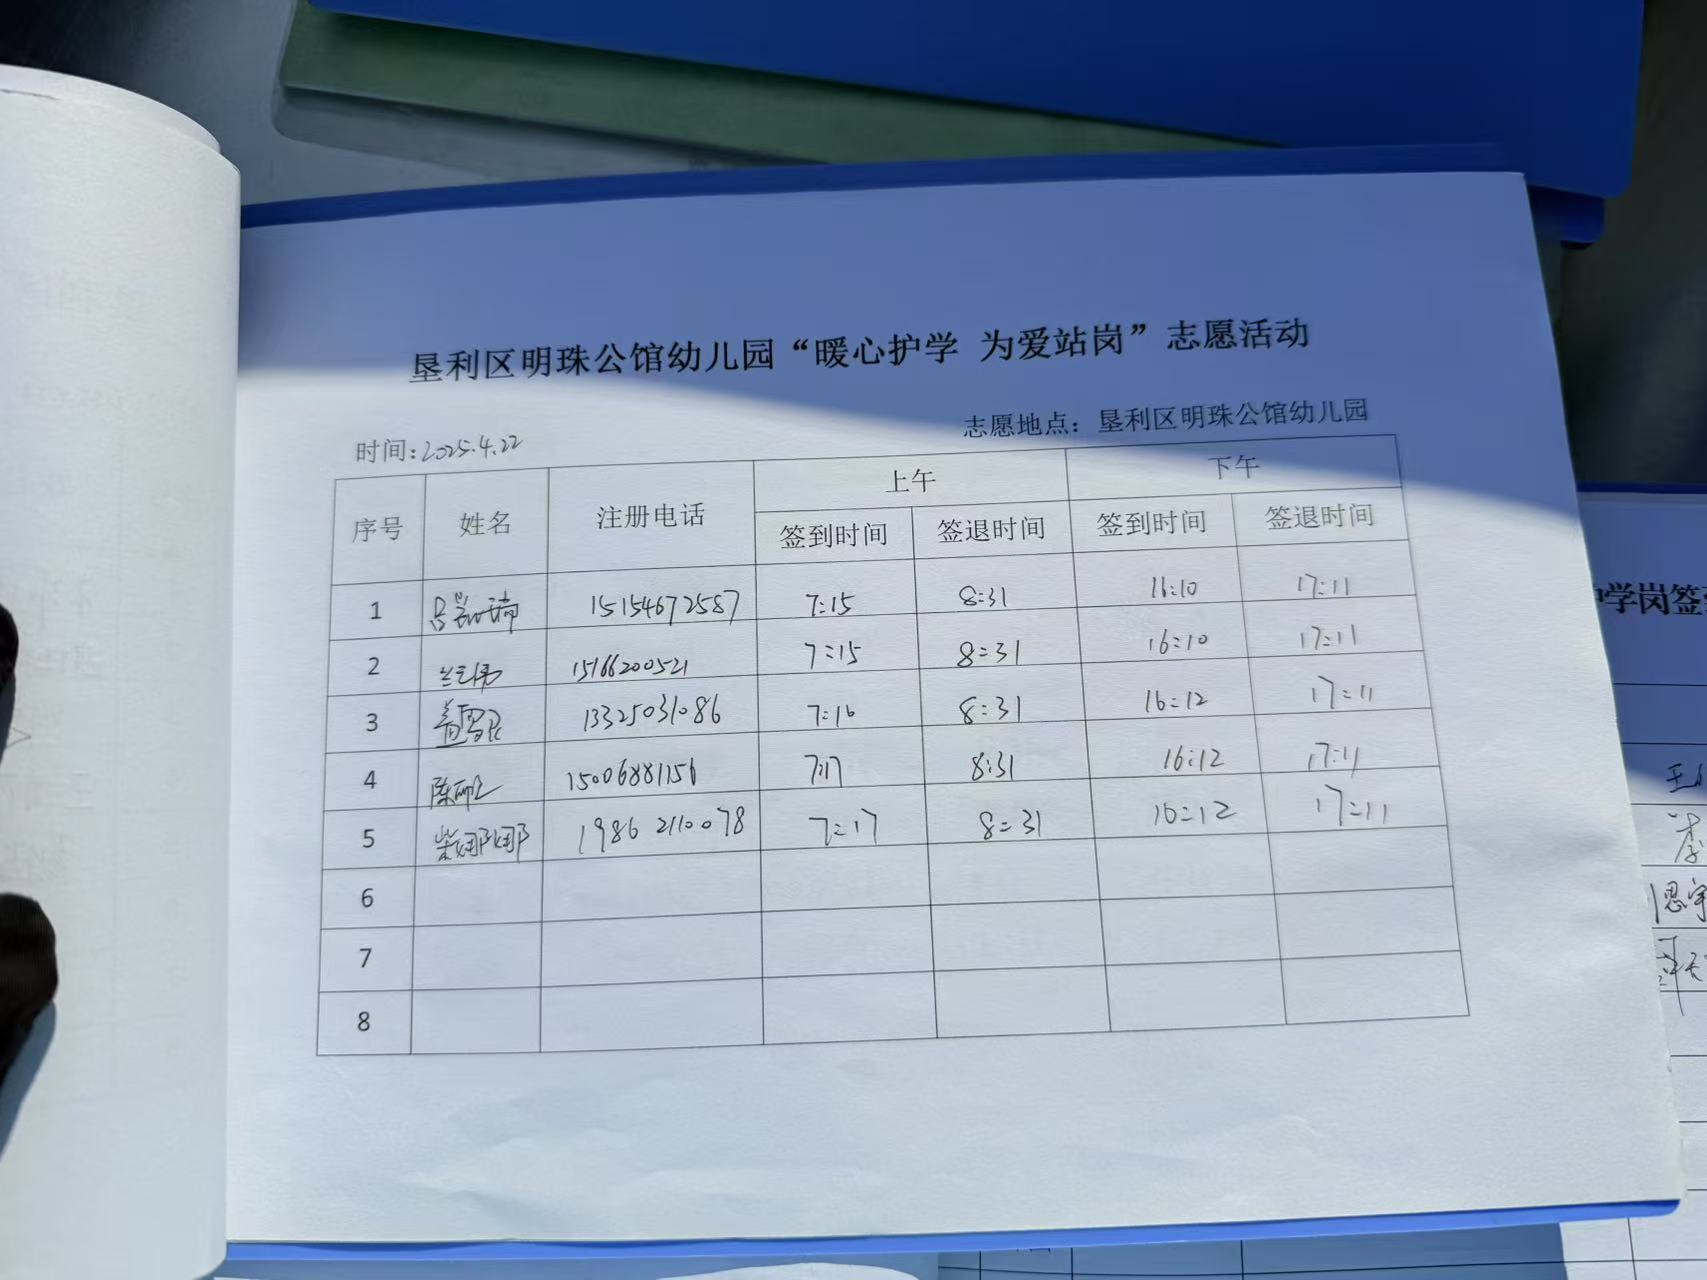 垦利区明珠公馆幼儿园“暖心护学 为爱站岗”志愿活动
时间:2025.4.22
志愿地点：垦利区明珠公馆幼儿园
序号 姓名 注册电话 上午 下午
签到时间 签退时间 签到时间 签退时间
1 15154672587 7:15 8:31 16:10 17:11
2 兰伟 15166200521 7:15 8:31 16:10 17:11
3 13325031086 7:16 8:31 16:12 17:11
4 陈丽 15006881156 7:17 8:31 16:12 17:11
5 柴娜娜 19862110078 7:17 8:31 16:12 17:11
6
7
8
学岗签
思宇